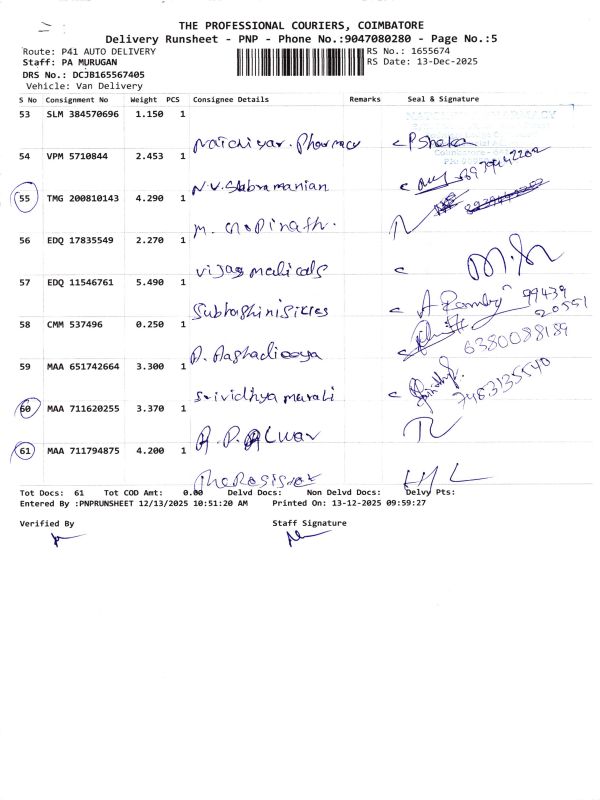 THE PROFESSIONAL COURIERS, COIMBATORE
Delivery Runsheet - PNP - Phone No.:9047080280 - Page No.:5
Route: P41 AUTO DELIVERY
RS No.: 1655674
Staff: PA MURUGAN
RS Date: 13-Dec-2025
DRS No.: DCJB165567405
Vehicle: Van Delivery
S No Consignment No Weight PCS Consignee Details Remarks Seal & Signature
53 SLM 384570696 1.150 1
Pharmacy
54 VPM 5710844 2.453 1
N.V. Subramanian
55 TMG 200810143 4.290 1
M. Gopinath.
56 EDQ 17835549 2.270 1
Vijay medicals
57 EDQ 11546761 5.490 1
99439
20551
58 CMM 537496 0.250 1
6380088189
59 MAA 651742664 3.300 1
Srividhya murali
7483135540
60 MAA 711620255 3.370 1
A.P. Alwar
61 MAA 711794875 4.200 1
Tot Docs: 61 Tot COD Amt: 0.00 Delvd Docs: Non Delvd Docs: Delvy Pts:
Entered By :PNPRUNSHEET 12/13/2025 10:51:20 AM Printed On: 13-12-2025 09:59:27
Verified By Staff Signature